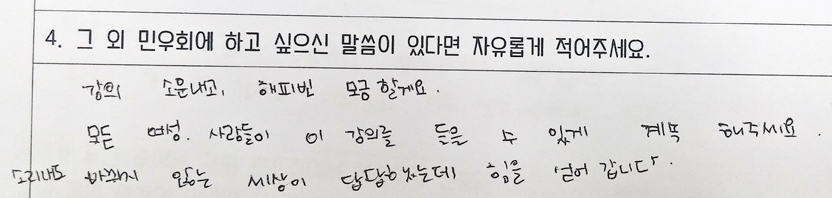 4. 그 외 민우회에 하고 싶으신 말씀이 있다면 자유롭게 적어주세요.
강의 소문내고, 해피빈 모금 할게요.
모든 여성. 사람들이 이 강의를 들을 수 있게 계속 해주세요.
소리내도 바뀌지 않는 세상이 답답했는데 힘을 얻어 갑니다.